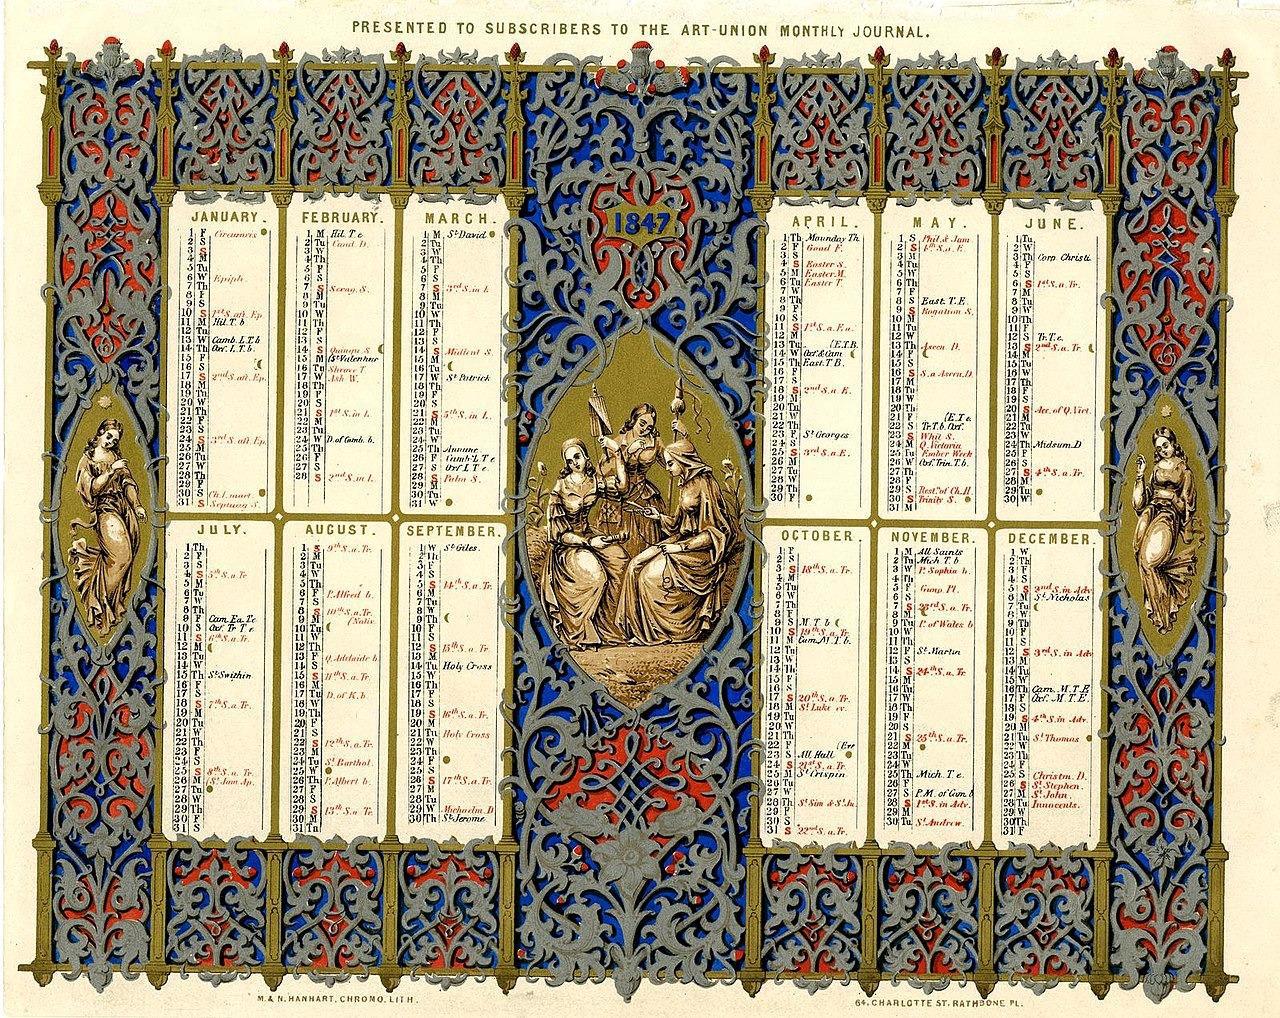 PRESENTED TO SUBSCRIBERS TO THE ART-UNION MONTHLY JOURNAL.
1847
JANUARY.
1 F Circumcis
2 S
3 S
4 M
5 Tu
6 W Epiph
7 Th
8 F
9 S
10 S 1st S. aft. Ep.
11 M Hil. T. b
12 Tu
13 W Camb. L. T. b
14 Th Oxf. L. T. b.
15 F
16 S
17 S 2nd S. aft. Ep.
18 M
19 Tu
20 W
21 Th
22 F
23 S
24 S 3rd S. aft. Ep.
25 M
26 Tu
27 W
28 Th
29 F
30 S Ch. 1. mart.
31 S Septuag. S.
FEBRUARY.
1 M Hil. T. e
2 Tu Cand. D.
3 W
4 Th
5 F
6 S
7 S Sexag. S.
8 M
9 Tu
10 W
11 Th
12 F
13 S
14 S Quinqu. S.
15 M St Valentine
16 Tu Shrove T
17 W Ash W.
18 Th
19 F
20 S
21 S 1st S. in L.
22 M
23 Tu
24 W D. of Camb. b.
25 Th
26 F
27 S
28 S 2nd S. in L.
MARCH.
1 M St David
2 Tu
3 W
4 Th
5 F
6 S
7 S 3rd S. in L
8 M
9 Tu
10 W
11 Th
12 F
13 S
14 S Midlent S.
15 M
16 Tu
17 W St Patrick
18 Th
19 F
20 S
21 S 5th S. in L.
22 M
23 Tu
24 W
25 Th Annunc.
26 F Camb. L. T. e
27 S Oxf. L. T. e
28 S Palm S.
29 M
30 Tu
31 W
APRIL.
1 Th Maunday Th
2 F Good F.
3 S
4 S Easter S.
5 M Easter M.
6 Tu Easter T.
7 W
8 Th
9 F
10 S
11 S 1st S. a. Ea.
12 M
13 Tu (E. T. B.
14 W Oxf & Cam
15 Th East. T. B.
16 F
17 S
18 S 2nd S. a. E.
19 M
20 Tu
21 W
22 Th
23 F St Georges
24 S
25 S 3rd S. a. E.
26 M
27 Tu
28 W
29 Th
30 F
MAY.
1 S Phil. & Jam
2 S 4th S. a. E
3 M
4 Tu
5 W
6 Th
7 F
8 S East. T. E.
9 S Rogation S.
10 M
11 Tu
12 W
13 Th Ascen. D.
14 F
15 S
16 S S. a Ascen. D.
17 M
18 Tu
19 W
20 Th
21 F (E. T. e.
22 S Tr. T. b. Oxf.
23 S Whit S.
24 M Q. Victoria
25 Tu Ember Week
26 W Oxf. Trin. T. b.
27 Th
28 F
29 S Rest.n of Ch. II
30 S Trinity S.
31 M
JUNE.
1 Tu
2 W
3 Th Corp. Christi
4 F
5 S
6 S 1st S. a. Tr.
7 M
8 Tu
9 W
10 Th
11 F
12 S Tr. T. e.
13 S 2nd S. a. Tr.
14 M
15 Tu
16 W
17 Th
18 F
19 S
20 S Acc. of Q. Vict.
21 M
22 Tu
23 W
24 Th Midsum. D
25 F
26 S
27 S 4th S. a. Tr.
28 M
29 Tu
30 W
JULY.
1 Th
2 F
3 S
4 S 5th S. a. Tr
5 M
6 Tu
7 W
8 Th
9 F Cam. Ea. T. e
10 S Oxf. Tr. T. e.
11 S 6th S. a. Tr.
12 M
13 Tu
14 W
15 Th St Swithin
16 F
17 S
18 S 7th S. a. Tr.
19 M
20 Tu
21 W
22 Th
23 F
24 S
25 S 8th S. a. Tr.
26 M St Jam. Ap.
27 Tu
28 W
29 Th
30 F
31 S
AUGUST.
1 S 9th S. a. Tr.
2 M
3 Tu
4 W
5 Th
6 F P. Alfred b.
7 S
8 S 10th S. a. Tr.
9 M
10 Tu
11 W
12 Th
13 F Q. Adelaide b.
14 S
15 S 11th S. a. Tr.
16 M
17 Tu D. of K. b.
18 W
19 Th
20 F
21 S
22 S 12th S. a. Tr.
23 M
24 Tu St Barthol.
25 W
26 Th P. Albert b.
27 F
28 S
29 S 13th S. a. Tr.
30 M
31 Tu
SEPTEMBER.
1 W St Giles.
2 Th
3 F
4 S
5 S 14th S. a. Tr.
6 M
7 Tu
8 W
9 Th
10 F
11 S
12 S 15th S. a. Tr.
13 M
14 Tu Holy Cross
15 W
16 Th
17 F
18 S
19 S 16th S. a. Tr.
20 M
21 Tu Holy Cross
22 W
23 Th
24 F
25 S
26 S 17th S. a. Tr.
27 M
28 Tu
29 W Michaelm. D
30 Th St Jerome
OCTOBER.
1 F
2 S
3 S 18th S. a. Tr.
4 M
5 Tu
6 W
7 Th
8 F
9 S M. T. b
10 S 19th S. a. Tr.
11 M Cam. M. T. b.
12 Tu
13 W
14 Th
15 F
16 S
17 S 20th S. a. Tr.
18 M St Luke ev.
19 Tu
20 W
21 Th
22 F (Eve
23 S All Hall
24 S 21st S. a. Tr.
25 M St Crispin
26 Tu
27 W
28 Th St Sim & St Ju.
29 F
30 S
31 S 22nd S. a. Tr.
NOVEMBER.
1 M All Saints
2 Tu Mich. T. b
3 W P. Sophia b.
4 Th
5 F Gunp. Pl.
6 S
7 S 23rd S. a. Tr.
8 M
9 Tu P. of Wales b.
10 W
11 Th
12 F St Martin
13 S
14 S 24th S. a. Tr.
15 M
16 Tu
17 W
18 Th
19 F
20 S
21 S 25th S. a. Tr.
22 M
23 Tu
24 W
25 Th Mich. T. e.
26 F
27 S P. M. of Cam b
28 S 1st S. in Adv.
29 M
30 Tu St Andrew.
DECEMBER.
1 W
2 Th
3 F
4 S
5 S 2nd S. in Adv
6 M St Nicholas
7 Tu
8 W
9 Th
10 F
11 S
12 S 3rd S. in Adv
13 M
14 Tu
15 W
16 Th Cam. M. T. E
17 F Oxf. M. T. E.
18 S
19 S 4th S. in Adv.
20 M
21 Tu St Thomas
22 W
23 Th
24 F
25 S Christm. D.
26 S St Stephen.
27 M St John.
28 Tu Innocents.
29 W
30 Th
31 F
M. & N. HANHART, CHROMO. LITH.
64, CHARLOTTE ST. RATHBONE PL.